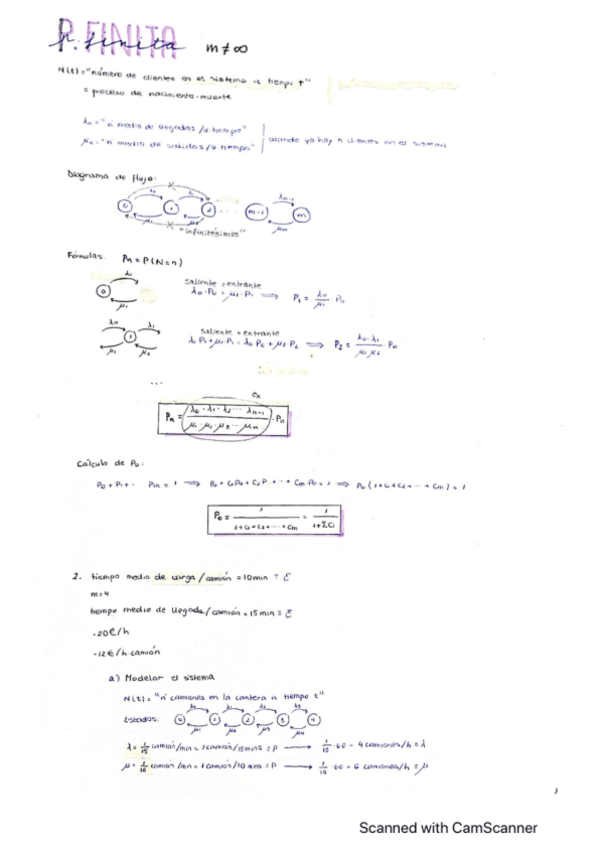 P. FINITA
p. finita m ≠ ∞
N(t) = "número de clientes en el sistema a tiempo t"
= proceso de nacimiento-muerte
λn = "nº medio de llegadas /u.tiempo"
μn = "nº medio de salidas /u.tiempo" | cuando ya hay n clientes en el sistema
Diagrama de flujo:
λ0 λ1 λm-1
0 1 2 ... m-1 m
μ1 μ2 μm
"infinitésimos"
Fórmulas: Pn = P(N=n)
λ0
0
μ1
saliente = entrante
λ0·P0 = μ1·P1 ⟹ P1 = λ0/μ1 · P0
λ0 λ1
1
μ1 μ2
saliente = entrante
λ1P1 + μ1·P1 = λ0P0 + μ2P2 ⟹ P2 = λ0·λ1/μ1·μ2 · P0
...
Cn
Pn = λ0·λ1·λ2 ··· λn-1 / μ1·μ2·μ3 ··· μn · P0
Cálculo de P0:
P0 + P1 + ·· Pm = 1 ⟹ P0 + C1P0 + C2P. + ·· + CmP0 = 1 ⟹ P0(1+C1+C2+ ··· + Cm) = 1
P0 = 1/1+C1+C2+···+Cm = 1/1+ΣCi
2. tiempo medio de carga / camión = 10 min = E
m=4
tiempo medio de llegada / camión = 15 min = E
-20€/h
-12€/h·camión
a) Modelar el sistema
N(t) = "nº camiones en la cantera a tiempo t"
λ0 λ1 λ2 λ3
Estados: 0 1 2 3 4
μ1 μ2 μ3 μ4
λ = 1/15 camión/min = 1 camión/15mins = P ⟶ 1/15 · 60 = 4 camiones/h = λ
μ = 1/10 camión/min = 1 camión/10 min = P ⟶ 1/10 · 60 = 6 camiones/h = μ
Scanned with CamScanner